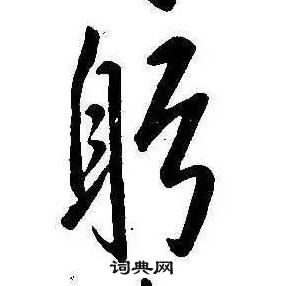 躬
词典网